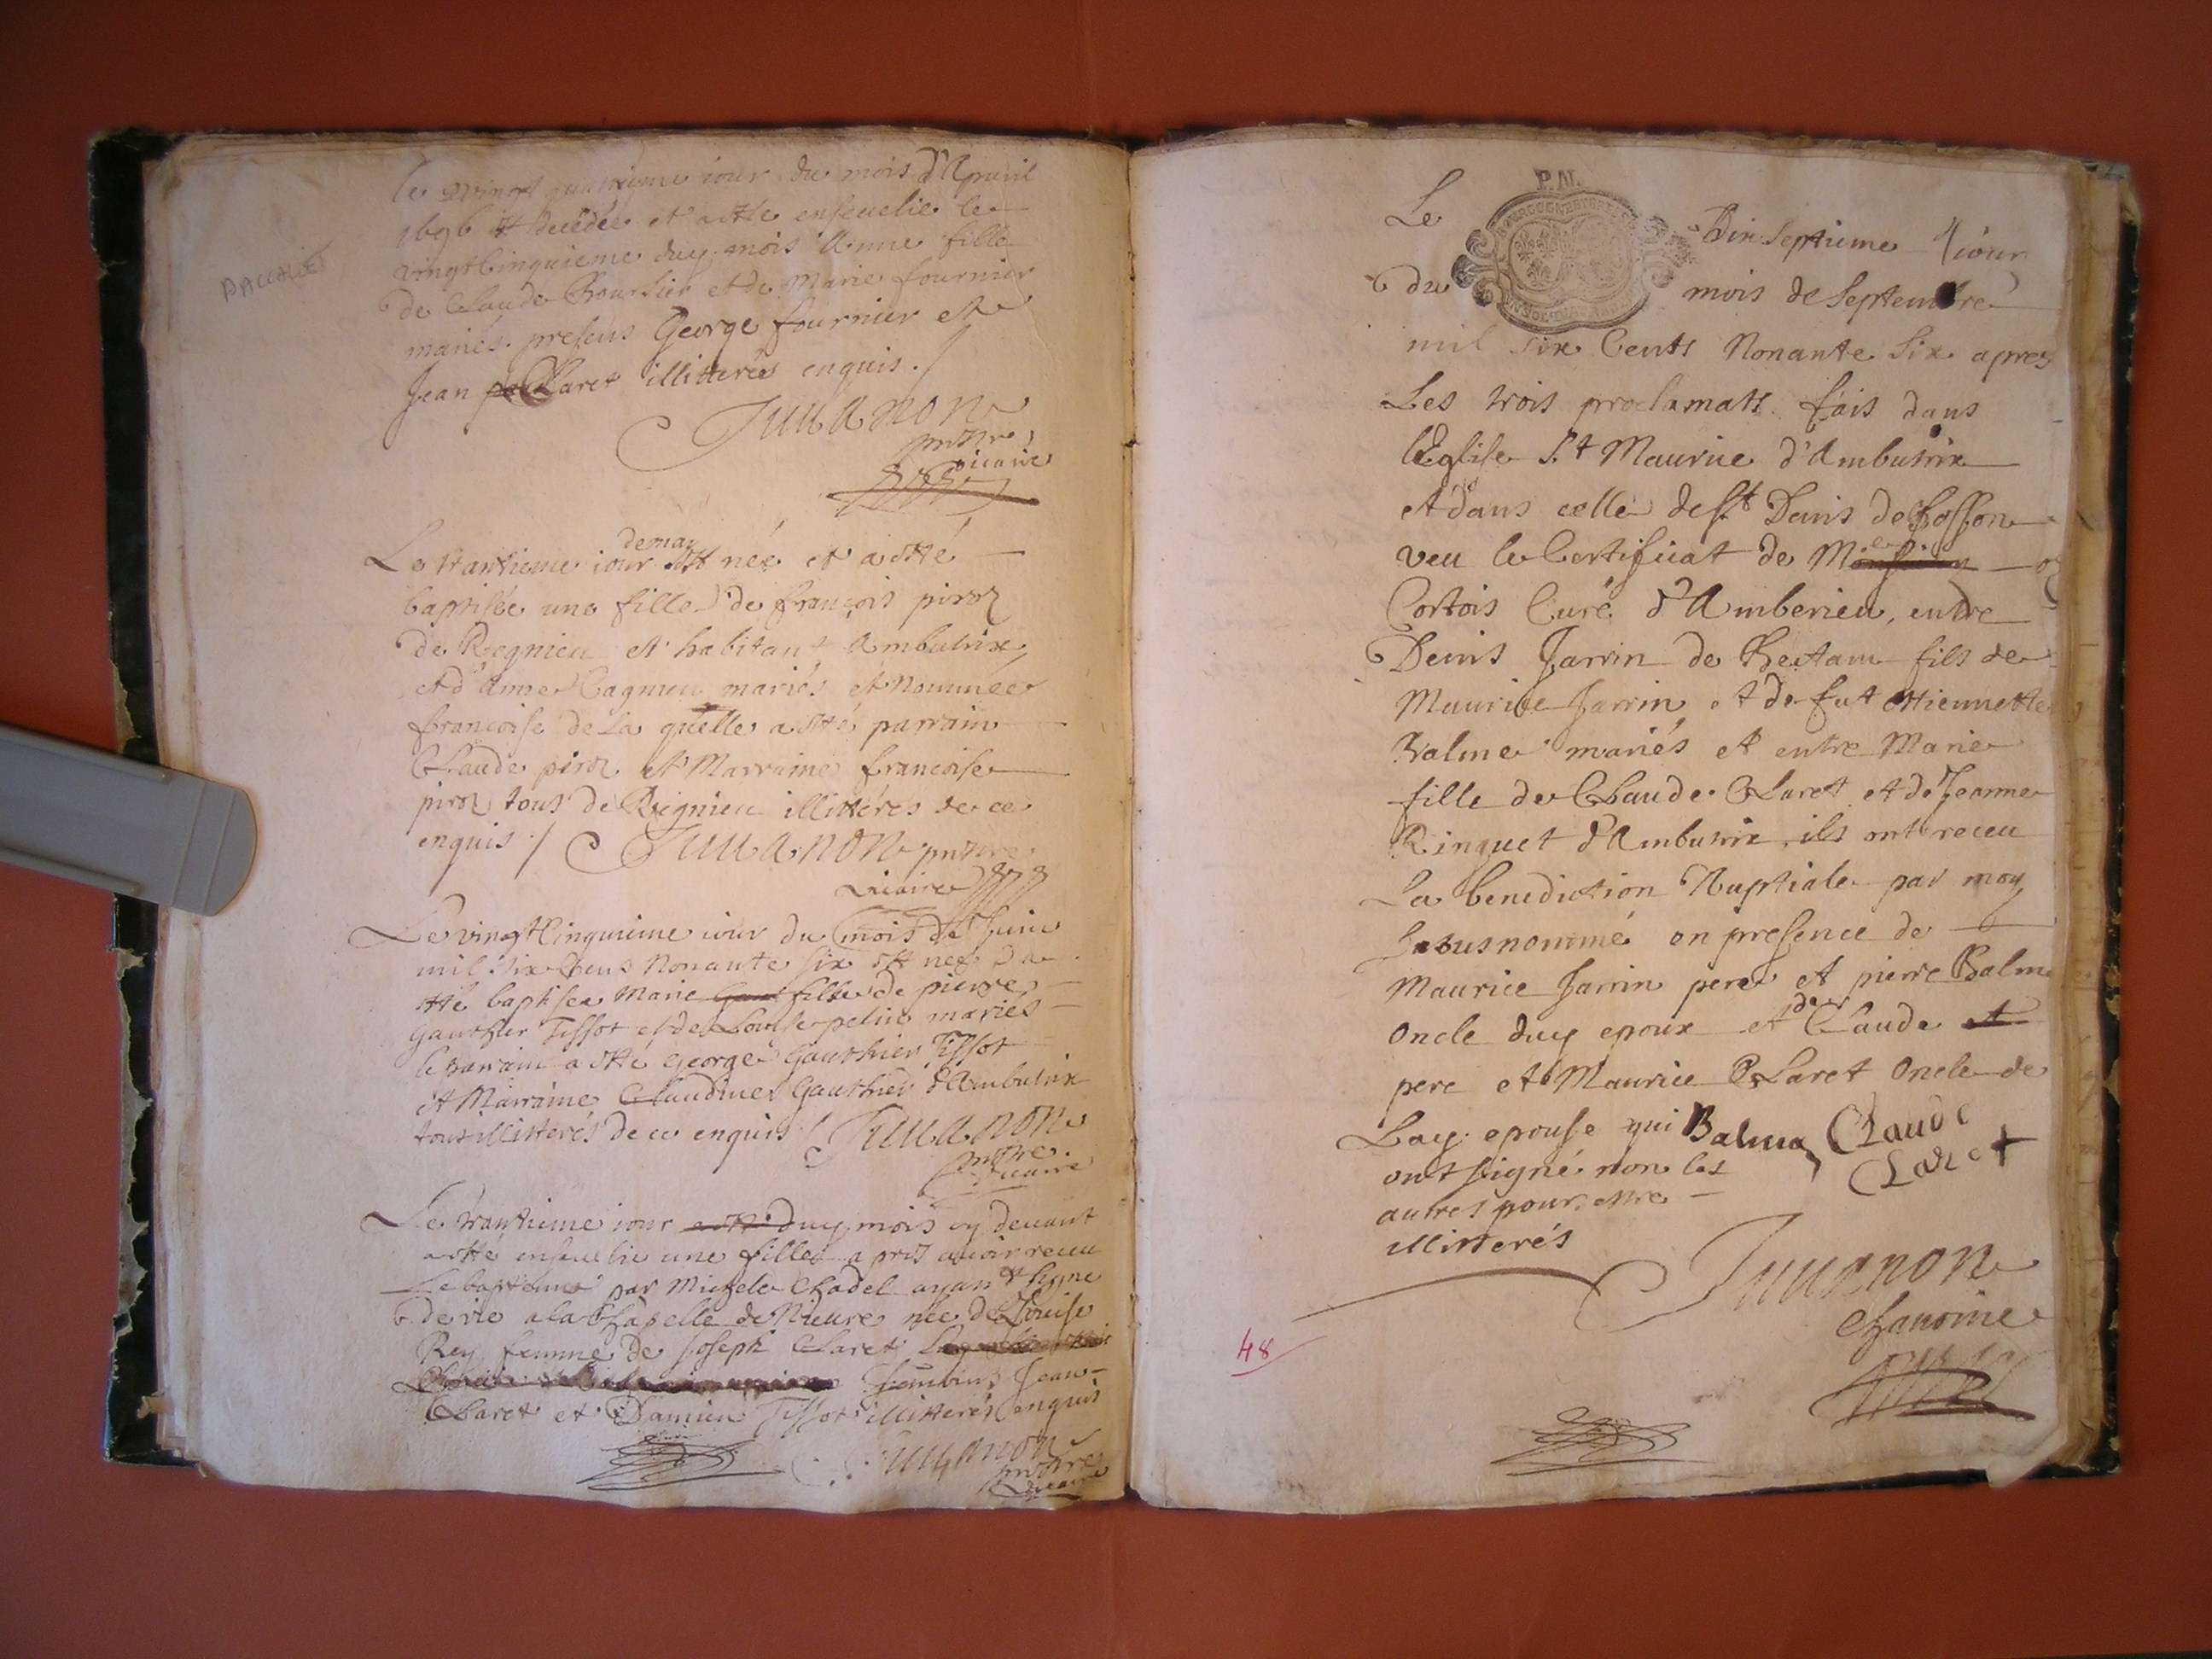 le vingt quatrieme iour du mois d'Apuril
1696 est decedée et a estée enseuelie le
vingtcinquieme duy mois Anne fille
de Claude Boursier et de Marie fournier
mariés. presens George fournier et
Jean Claret illitterés enquis./
Juuanon
prestre
vicaire
PACCALLET
de may
Le trantieme iour est née et a esté
baptisée une fille de françois piroz
de Regnieu et habitant Ambutrix
et d'Anne Cagnieu mariés et Nommée
françoise de la quelle a esté parrain
Claude piroz et Marraine françoise
piroz tous de Reignieu illitterés de ce
enquis ./ Juuanon prestre
vicaire
Le vingtcinquieme iour du mois de Juin
mil six cens Nonante six est née & a
esté baptisée Marie fille de pierre
Gauthier Tissot et de Louise pelin mariés
le parrain a esté George Gauthier Tissot
et Marraine Claudine Gauthier d'Ambutrix
tous illitterés de ce enquis / Juuanon
prestre
vicaire
Le trantieme iour duy mois cy deuant
a esté enseuelie une fille apres auoir receu
Le baptesme par Michele Chadel ayant signe
de vie a la Chapelle de Nieure née de Louise
Rey femme de Joseph Claret
Tesmoins Jean
Claret et Damien Tissot illitterés enquis
Juuanon
prestre
vicaire
P.N.
Le Dix Septieme iour
du mois de Septembre
mil six Cents Nonante Six apres
Les trois proclamats fais dans
l'Eglise St Maurice d'Ambutrix
et dans celle de St Denis de Chosson
veu le Certificat de M
Cortois Curé d'Amberieu, entre
Denis Jarrin de Bettam fils de
Maurice Jarrin et de fut Estiennette
Balme mariés et entre Marie
fille de Claude Claret et de Jeanne
Ringuet d'Ambutrix, ils ont receu
La benediction Nuptiale par moy
Sousnommé en presence de
Maurice Jarrin pere et pierre Balme
Oncle duy epoux et de Claude et
pere et Maurice Claret Oncle de
Lay. epouse qui Balma Claude
ont signé non les Claret
autres pour estre
illitterés
Juuanon
Chanoine
48